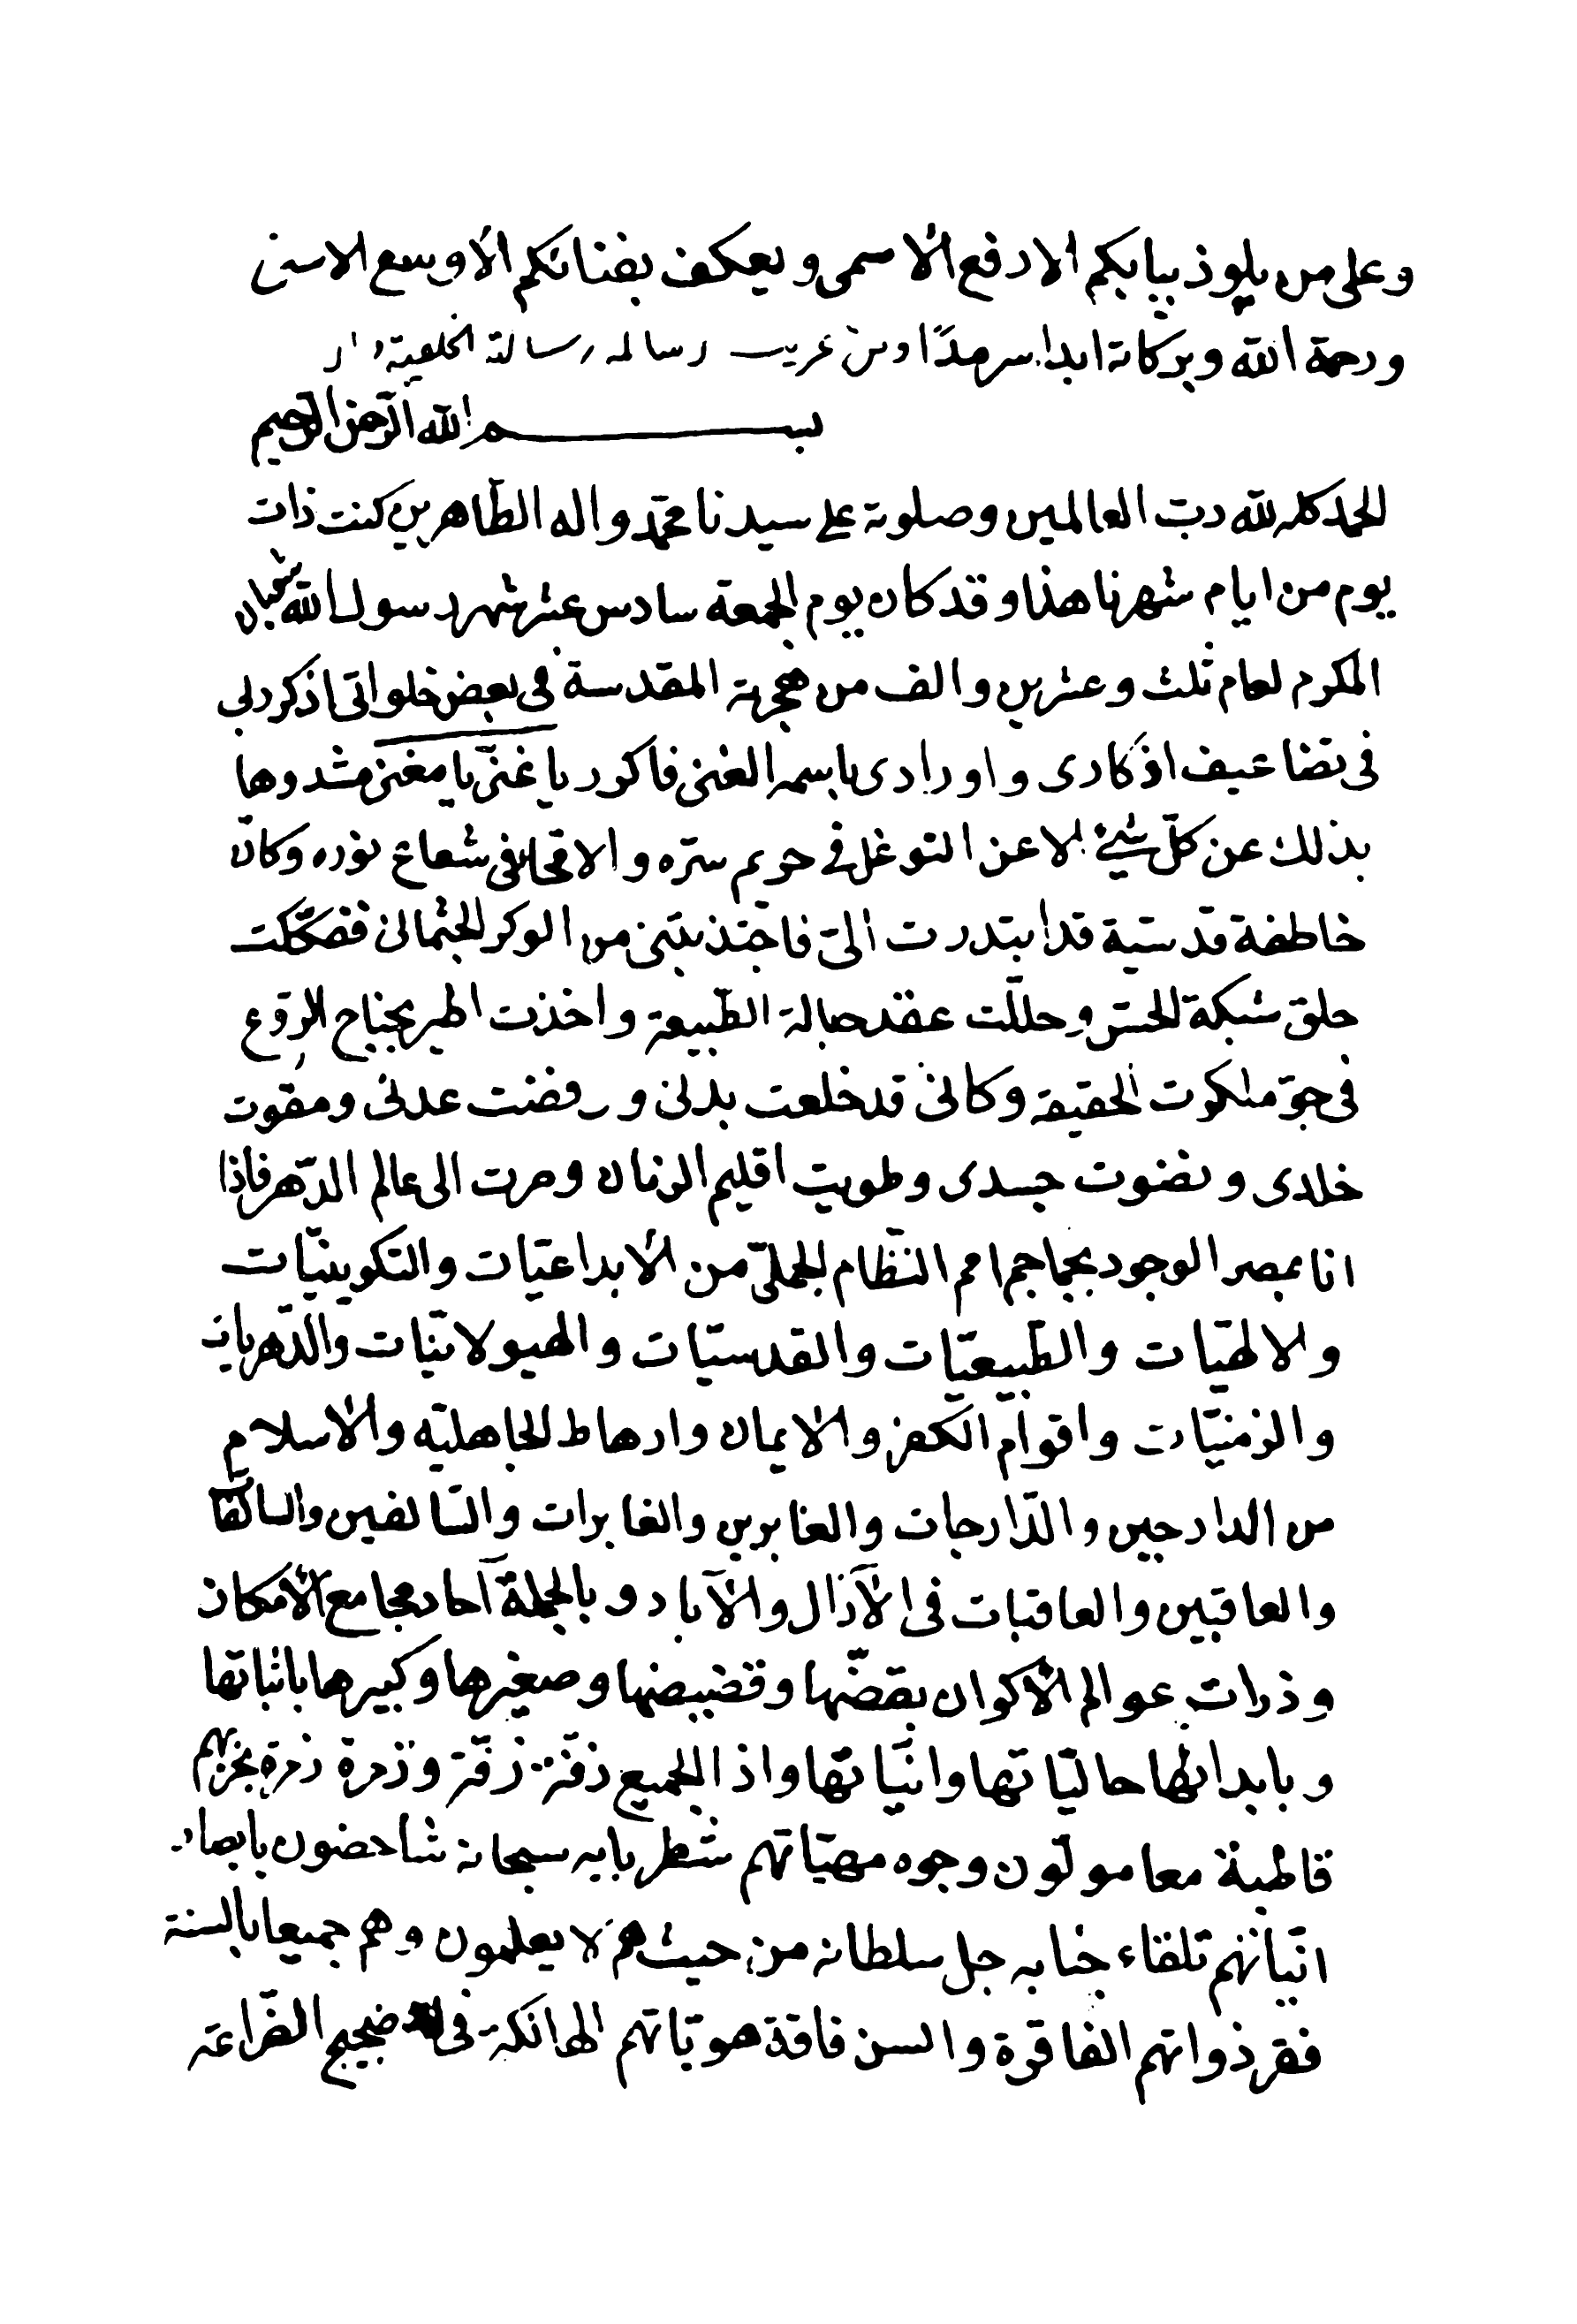 وعلى من يلوذ ببابكم الارفع الاسمى ويعكف بفنائكم الأوسع الاسنى
ورحمة الله وبركاته ابدا سرمدًا ومن غريب رسالة الخلعية
بسم الله الرحمن الرحيم
الحمد كله لله رب العالمين وصلوته على سيدنا محمد واله الطاهرين كنت ذات
يوم من ايام شهرنا هذا وقد كان يوم الجمعة سادس عشر شهر رسول الله شعبان
المكرم لعام ثلث وعشرين والف من هجرته المقدسة فى بعض خلواتى اذكر ربى
فى تضاعيف اذكارى واورادى باسمه الغنى فاكرر يا غنىّ يا مغنى مشدوها
بذلك عن كلّ شئ الا عن التوغل فى حريم سرّه والامحاء فى شعاع نوره وكانّ
خاطفة قدسيّة قد ابتدرت الىّ فاجتذبتنى من الوكر الجثمانى ففككت
حلق شبكة الحسّ وحللت عقد حبالة الطّبيعة واخذت اطير بجناح الروع
فى جوّ ملكوت الحقيقة وكانى قد خلعت بدنى ورفضت عدنى ومقوت
خلدى ونضوت جسدى وطويت اقليم الزمان وصرت الى عالم الدّهر فاذا
انا بمصر الوجود بجماجم امم النّظام الجملىّ من الابداعيّات والتكوينيّات
والالهيّات والطّبيعيّات والقدسيّات والهيولانيّات والدّهريات
والزمنيّات واقوام الكفر والايمان وارهاط الجاهليّه والاسلام
من الدارجين والدّارجات والغابرين والغابرات والسّالفين والسالفات
والعاقبين والعاقبات فى الآزال والآباد وبالجملة آحاد مجامع الامكان
وذرات عوالم الاكوان بقضّها وقضيضها وصغيرها وكبيرها باثباتها
وبابدائها حاليّاتها وانيّاتها واذ الجميع زفّة زفّة وزمرة زمرة بحزبهم
قاطبة معا مولّون وجوه مهيّاتهم شطر بابه سبحانه شاخصون بابصار
انيّاتهم تلقاء جنابه جل سلطانه من حيث هم لا يعلمون وهم جميعا بالسنة
فقر ذواتهم الفاقرة والسن فاقة هويّاتهم الهالكة فى ضجيج الضّراعة